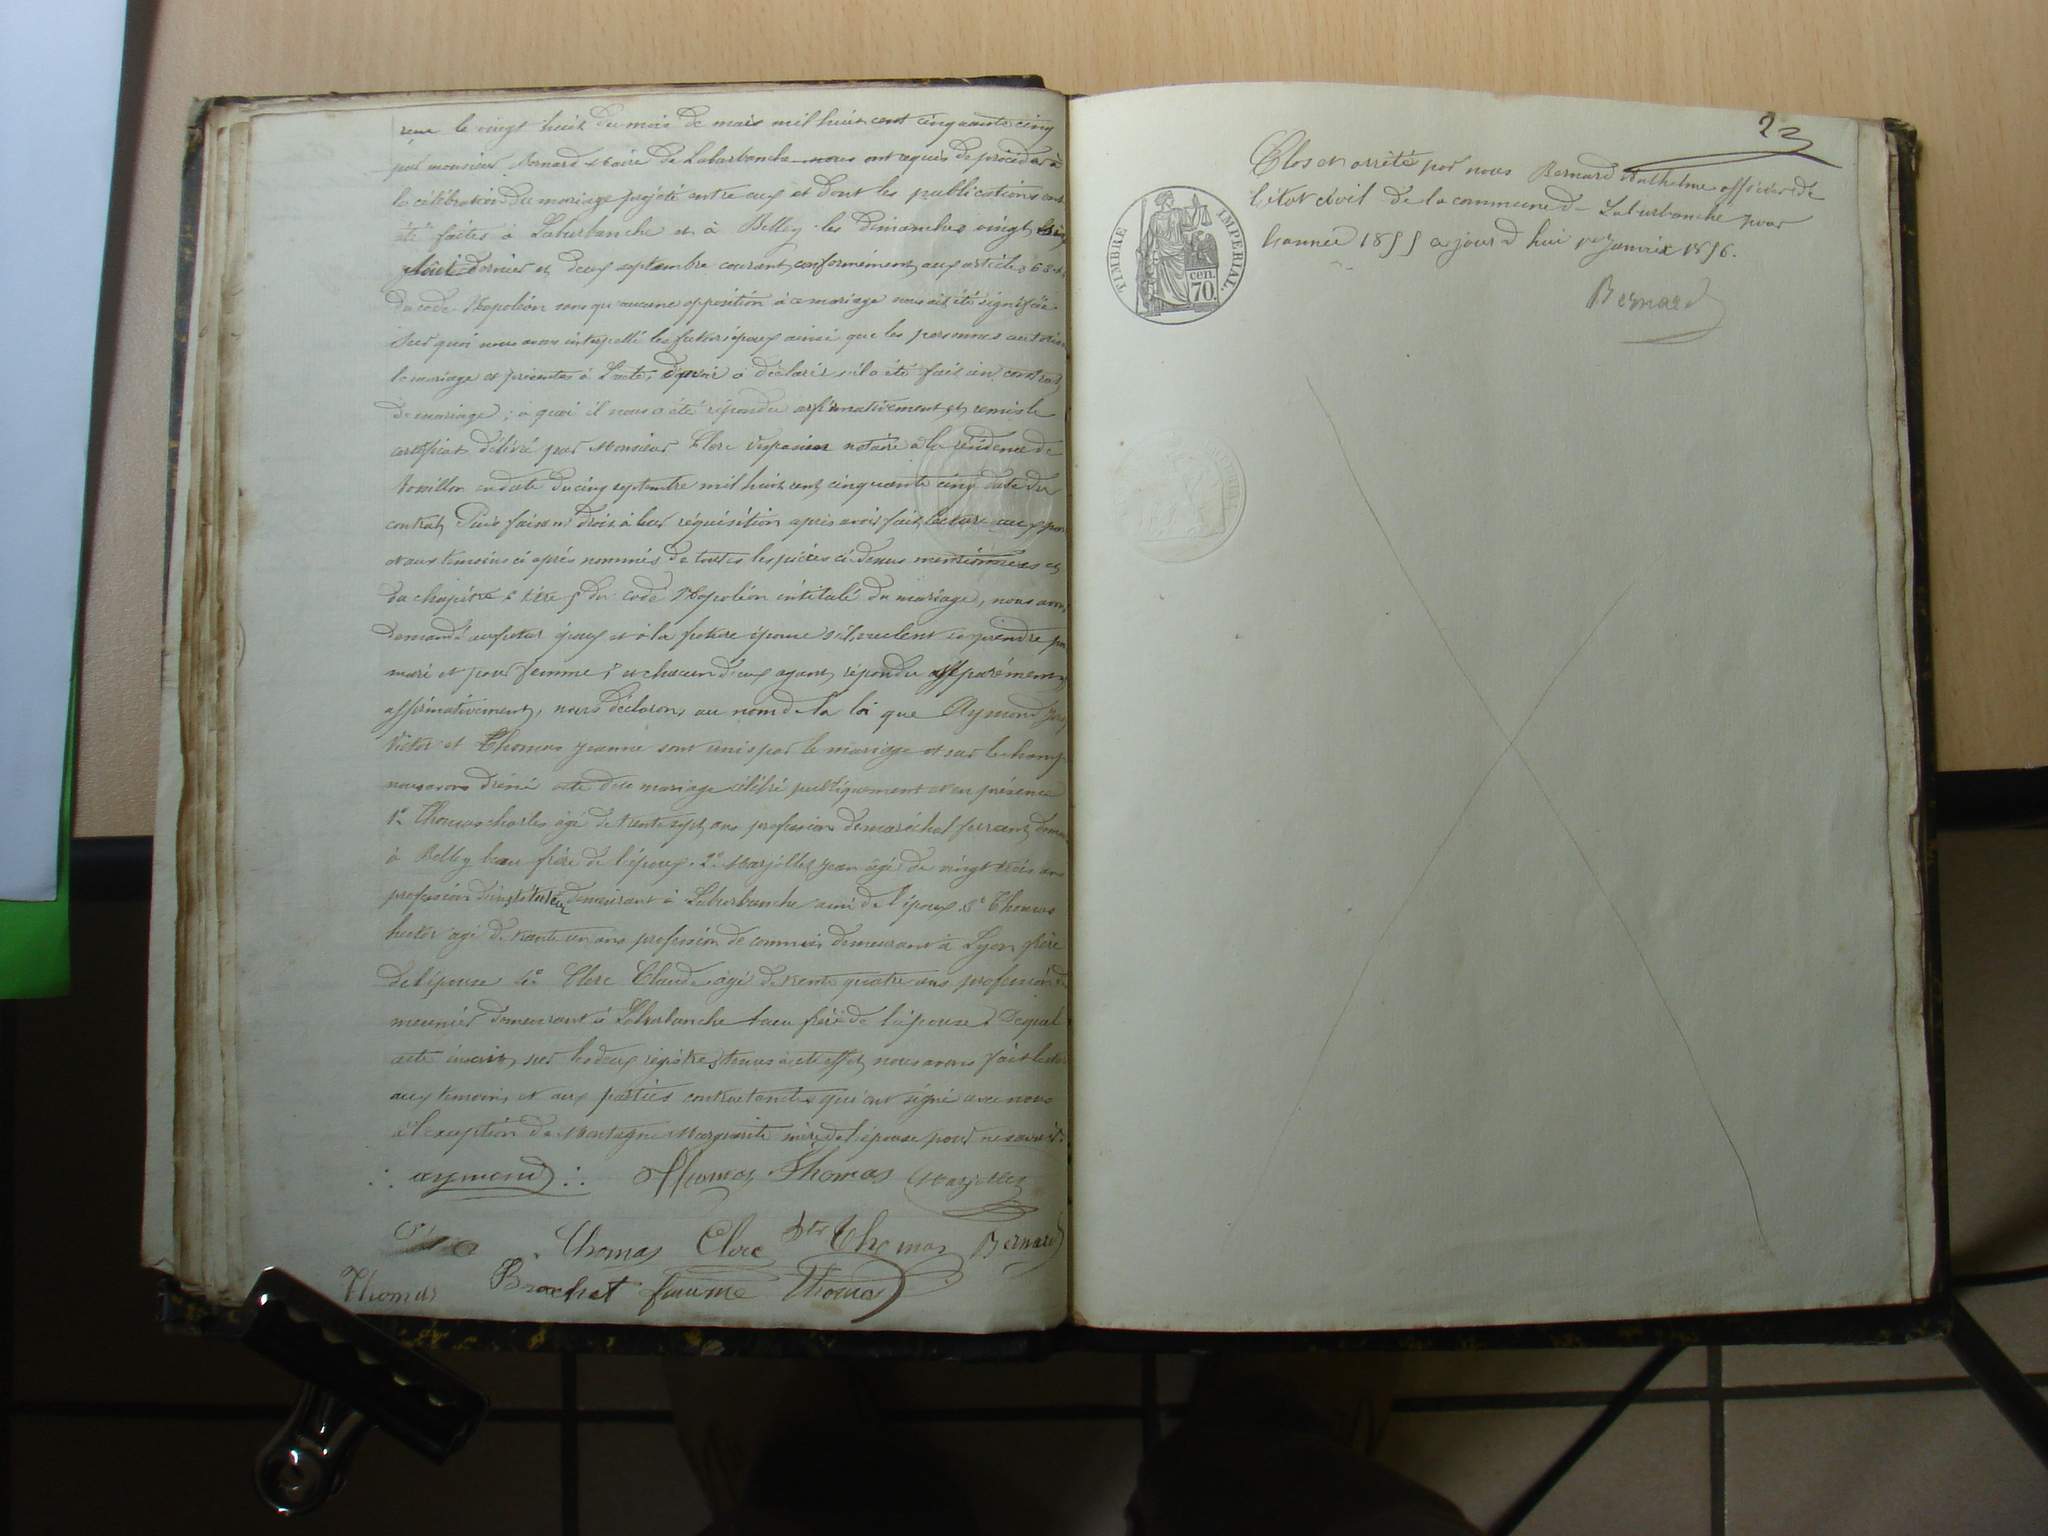 reçue le vingt huit du mois de mars mil huit cent cinquante cinq
par monsieur Bernard Maire de Laburbanche nous ont requis de procéder à
la célébration du mariage projeté entre eux et dont les publications ont
été faites à Laburbanche et à Belley les dimanches vingt six
Août dernier et deux septembre courant conformément aux articles 63
du code Napoléon sans qu'aucune opposition à ce mariage nous ait été signifiée
Sur quoi nous avons interpellé les futurs époux ainsi que les personnes autorisant
le mariage et présentes à l'acte, d'avoir à déclarer s'il a été fait un contrat
de mariage ; à quoi il nous a été répondu affirmativement et remis le
certificat délivré par Monsieur Clerc Vespasien notaire à la résidence de
en date du cinq septembre mil huit cent cinquante cinq date du
contrat Puis faisant droit à leur réquisition après avoir fait lecture aux
et aux temoins ci après nommés de toutes les pièces ci dessus mentionnées et
du chapitre 6 titre 5 du code Napoléon intitulé du mariage, nous avons
demandé au futur époux et à la future épouse s'ils veulent se prendre pour
mari et pour femme ; et chacun d'eux ayant répondu séparément
affirmativement, nous déclarons au nom de la loi que Aymond
Victor et Thomas Jeanne sont unis par le mariage et sur le champ
nous avons dressé acte du mariage célébré publiquement et en présence
1° Thomas Charles âgé de trente sept ans profession de maréchal ferrant
à Belley beau frère de l'époux. 2° Marjollet Jean âgé de vingt trois ans
profession d'instituteur demeurant à Laburbanche ami de l'époux 3° Thomas
hector âgé de trente un ans profession de commis demeurant à Lyon frère
de l'épouse 4° Clerc Claude âgé de trente quatre ans profession de
meunier demeurant à Laburbanche beau frère de l'épouse. Duquel
acte inscrit sur les deux registres tenus à cet effet nous avons fait lecture
aux temoins et aux parties contractantes qui ont signé avec nous
à l'exception de Montagne Marguerite mère de l'épouse pour ne savoir.
aymond Thomas Thomas Marjollet
Thomas Clerc Thomas Bernard
Thomas Brochet femme Thomas
23
Clos et arrêté par nous Bernard Anthelme officier de
l'état civil de la commune de Laburbanche pour
l'année 1855 aujourd'hui 1er janvier 1856.
Bernard
TIMBRE IMPERIAL
cen.
70.